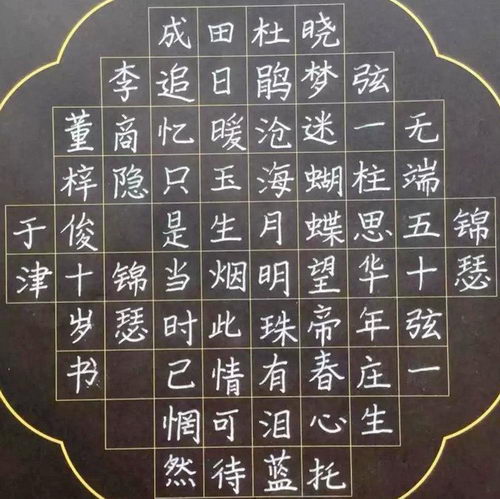 锦瑟
无端五十弦一
弦一柱思华年庄生
晓梦迷蝴蝶望帝春心托
杜鹃沧海月明珠有泪蓝
田日暖玉生烟此情可待
成追忆只是当时已惘然
李商隐 锦瑟
董梓俊十岁书
于津